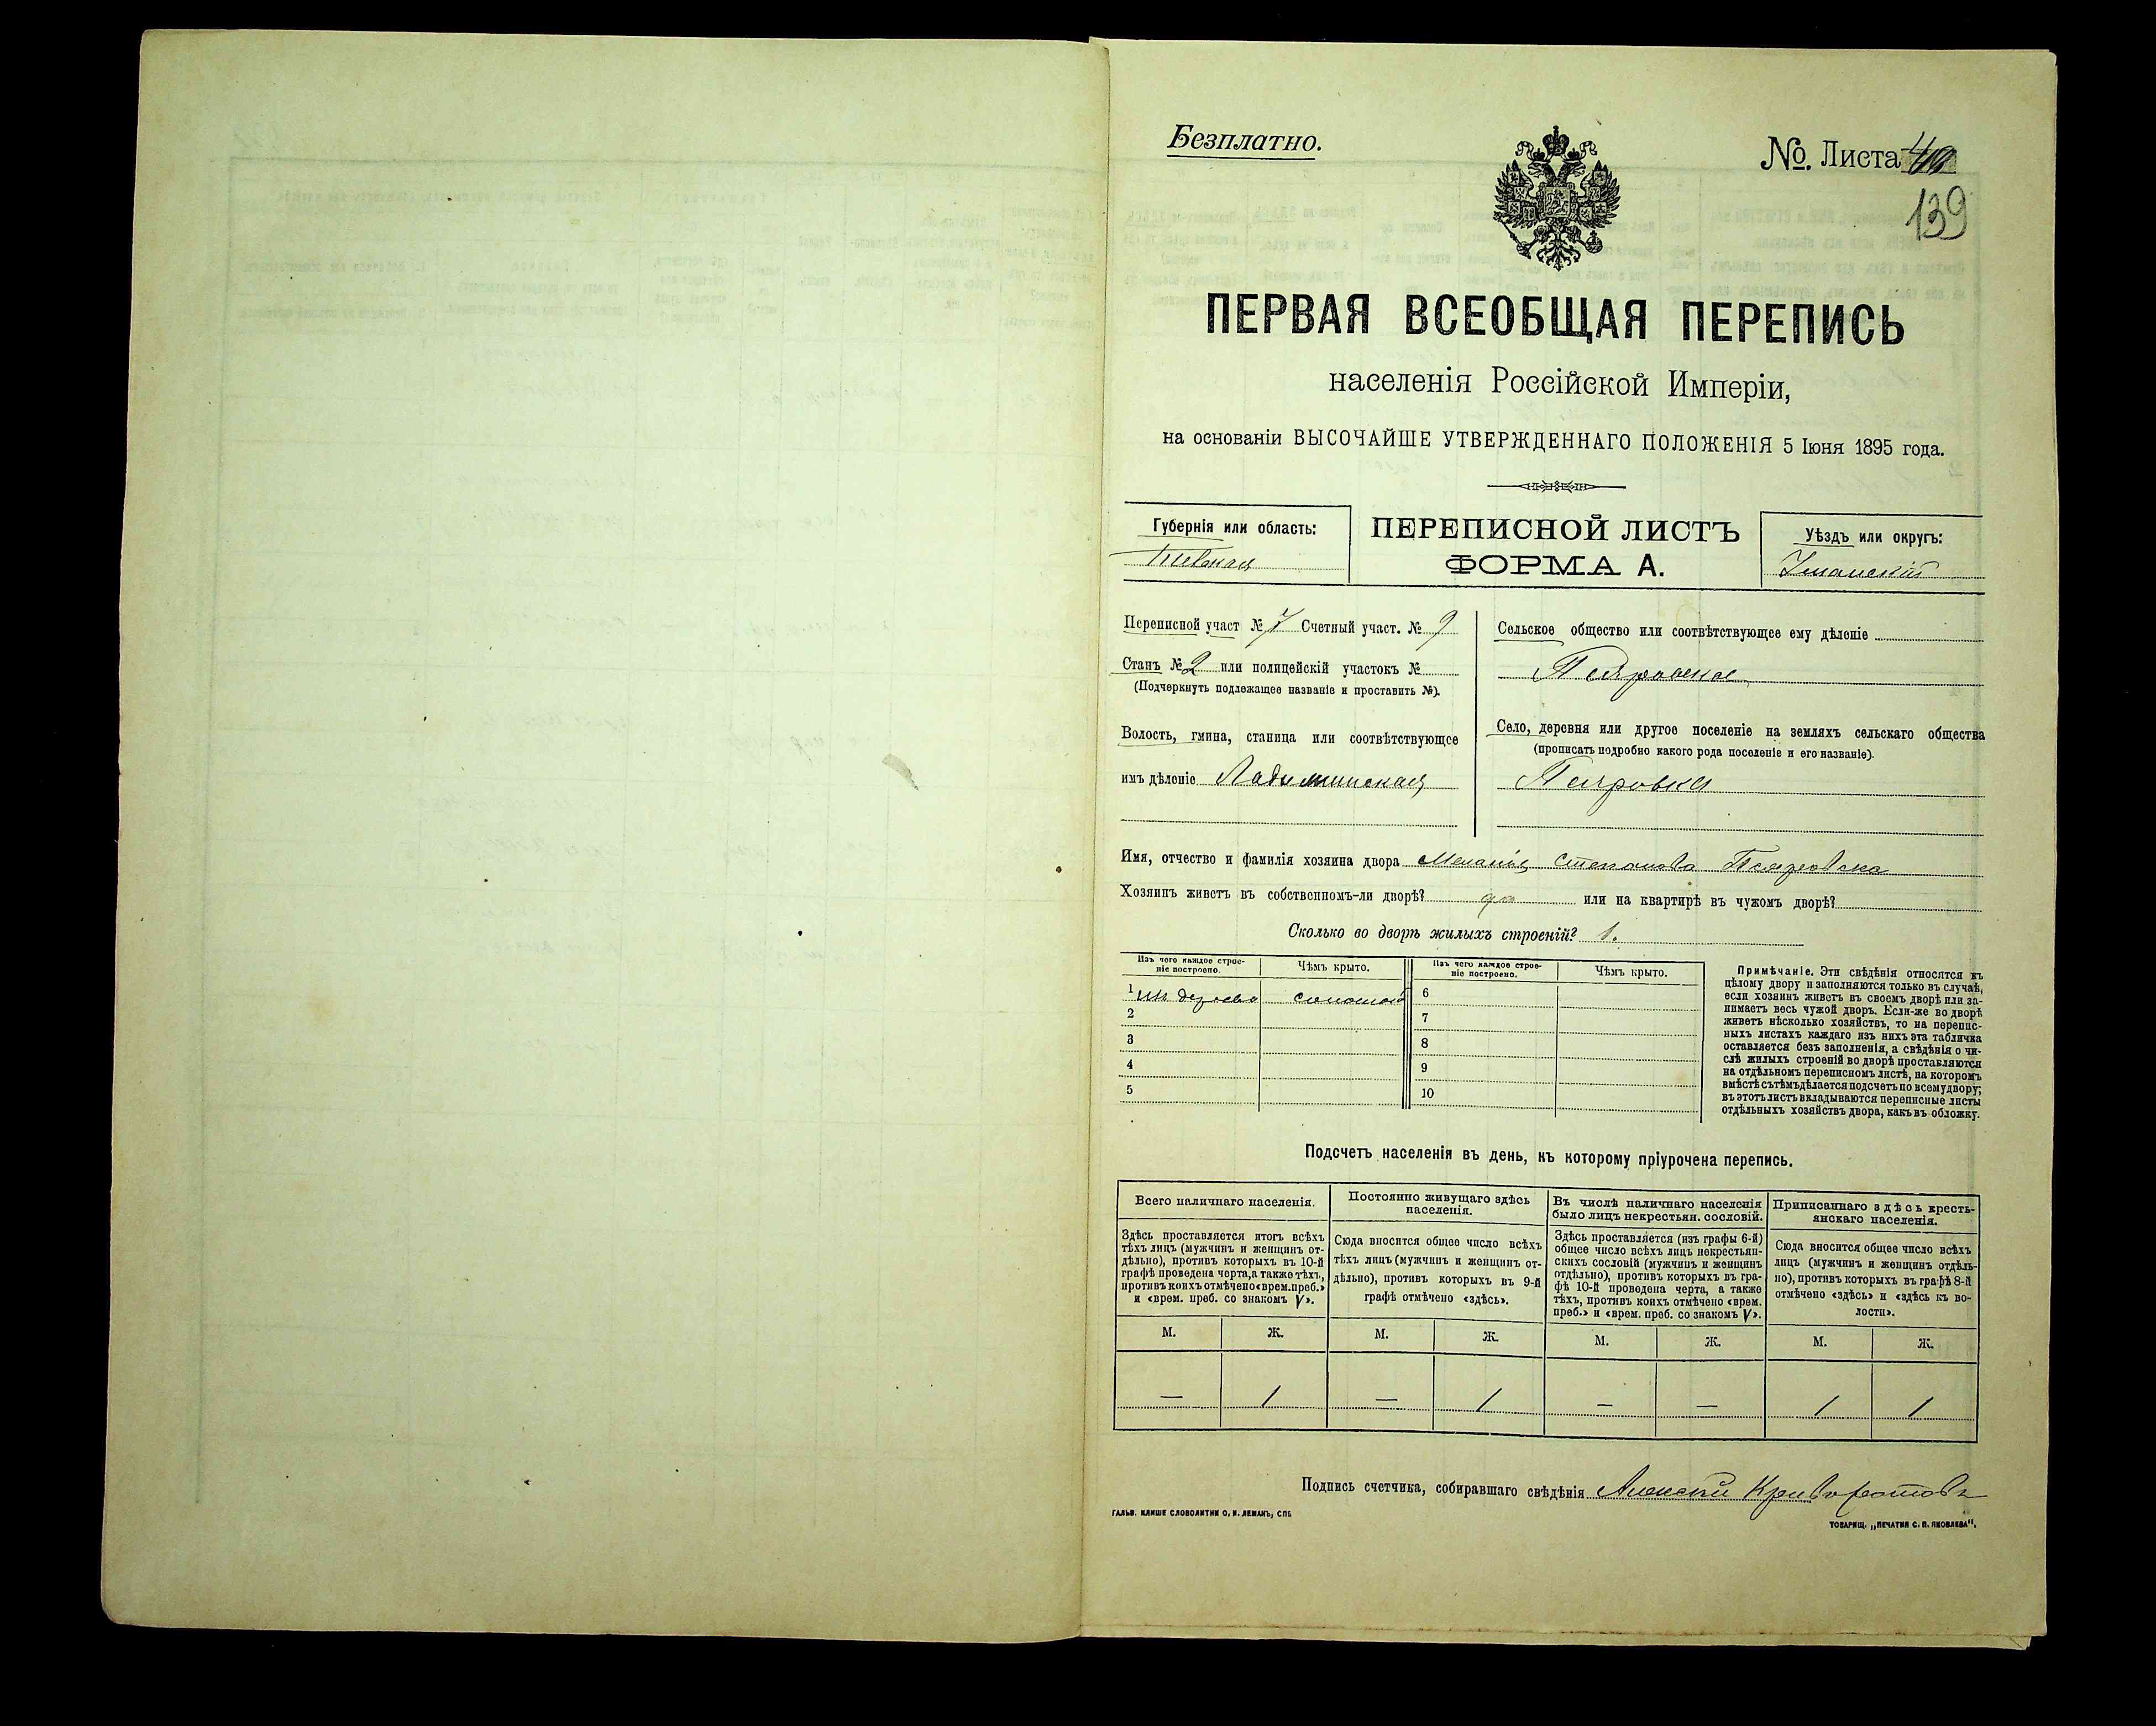 Безплатно.
№ Листа 40
139
ПЕРВАЯ ВСЕОБЩАЯ ПЕРЕПИСЬ
населенія Россійской Имперіи,
на основаніи ВЫСОЧАЙШЕ УТВЕРЖДЕННАГО ПОЛОЖЕНІЯ 5 Іюня 1895 года.
Губернія или область:
Кіевская
ПЕРЕПИСНОЙ ЛИСТЪ
ФОРМА А.
Уѣздъ или округъ:
Уманскій
Переписной участ № 7 Счетный участ. № 9
Станъ № 2 или полицейскій участокъ №
(Подчеркнуть подлежащее названіе и проставить №).
Волость, гмина, станица или соотвѣтствующее
имъ дѣленіе Ладыжинская
Сельское общество или соотвѣтствующее ему дѣленіе
Петровское
Село, деревня или другое поселеніе на земляхъ сельскаго общества
(прописать подробно какого рода поселеніе и его названіе).
Петровка
Имя, отчество и фамилія хозяина двора Меланія Степанова
Хозяинъ живетъ въ собственномъ-ли дворѣ? да или на квартирѣ въ чужомъ дворѣ?
Сколько во дворѣ жилыхъ строеній? 1.
Изъ чего каждое строе-
ніе построено.
Чѣмъ крыто.
Изъ чего каждое строе-
ніе построено.
Чѣмъ крыто.
1 изъ дерева соломой 6
2 7
3 8
4 9
5 10
Примѣчаніе. Эти свѣдѣнія относятся къ
цѣлому двору и заполняются только въ случаѣ,
если хозяинъ живетъ въ своемъ дворѣ или за-
нимаетъ весь чужой дворъ. Если-же во дворѣ
живетъ нѣсколько хозяйствъ, то на перепис-
ныхъ листахъ каждаго изъ нихъ эта табличка
оставляется безъ заполненія, а свѣдѣнія о чи-
слѣ жилыхъ строеній во дворѣ проставляются
на отдѣльномъ переписномъ листѣ, на которомъ
вмѣстѣ съ тѣмъ дѣлается подсчетъ по всему двору;
въ этотъ листъ вкладываются переписные листы
отдѣльныхъ хозяйствъ двора, какъ въ обложку.
Подсчетъ населенія въ день, къ которому пріурочена перепись.
Всего наличнаго населенія.
Здѣсь проставляется итогъ всѣхъ
тѣхъ лицъ (мужчинъ и женщинъ от-
дѣльно), противъ которыхъ въ 10-й
графѣ проведена черта, а также тѣхъ,
противъ коихъ отмѣчено «врем. преб.»
и «врем. преб. со знакомъ V».
Постоянно живущаго здѣсь
населенія.
Сюда вносится общее число всѣхъ
тѣхъ лицъ (мужчинъ и женщинъ от-
дѣльно), противъ которыхъ въ 9-й
графѣ отмѣчено «здѣсь».
Въ числѣ наличнаго населенія
было лицъ некрестьян. сословій.
Здѣсь проставляется (изъ графы 6-й)
общее число всѣхъ лицъ некрестьян-
скихъ сословій (мужчинъ и женщинъ
отдѣльно), противъ которыхъ въ гра-
фѣ 10-й проведена черта, а также
тѣхъ, противъ коихъ отмѣчено «врем.
преб.» и «врем. преб. со знакомъ V».
Приписаннаго здѣсь кресть-
янскаго населенія.
Сюда вносится общее число всѣхъ
лицъ (мужчинъ и женщинъ отдѣль-
но), противъ которыхъ въ графѣ 8-й
отмѣчено «здѣсь» и «здѣсь къ во-
лости».
М. Ж. М. Ж. М. Ж. М. Ж.
— 1 — 1 — — 1 1
Подпись счетчика, собиравшаго свѣдѣнія Алексѣй
ГАЛЬВ. КЛИШЕ СЛОВОЛИТНИ О. И. ЛЕМАНЪ, СПБ
ТОВАРИЩ. „ПЕЧАТНЯ С. П. ЯКОВЛЕВА".